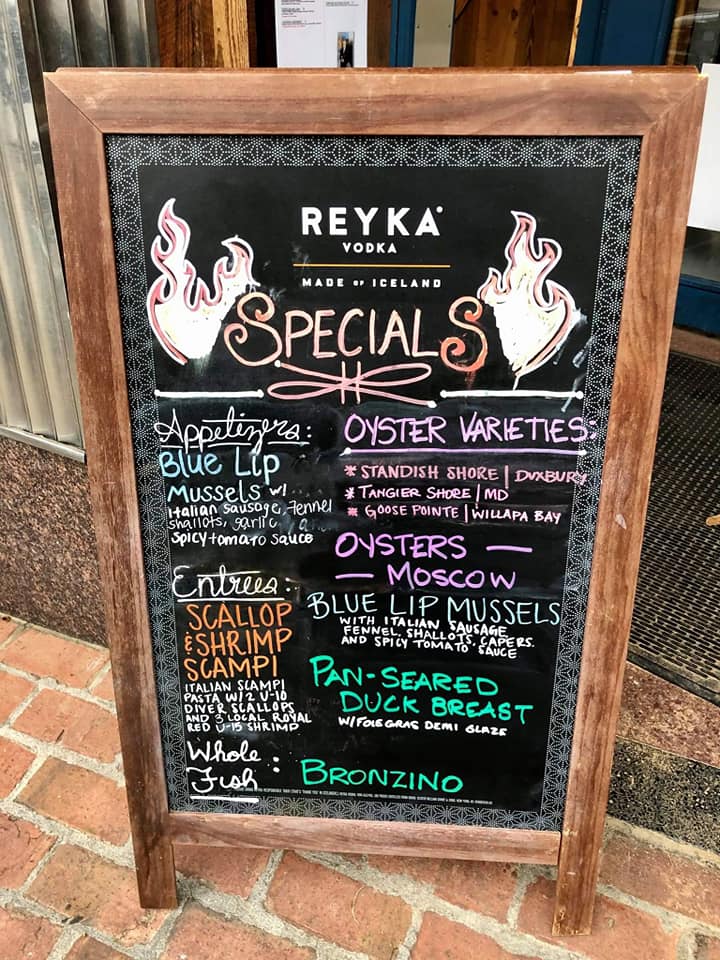 REYKA
VODKA
MADE OF ICELAND
SPECIALS
Appetizers:
Blue Lip
Mussels w/
Italian Sausage, Fennel
shallots, garlic,
spicy tomato sauce
OYSTER VARIETIES:
* STANDISH SHORE | DUXBURY
* TANGIER SHORE | MD
* GOOSE POINTE | WILLAPA BAY
OYSTERS —
— MOSCOW
BLUE LIP MUSSELS
WITH ITALIAN SAUSAGE
FENNEL, SHALLOTS, CAPERS.
AND SPICY TOMATO SAUCE
Entrees:
SCALLOP
& SHRIMP
SCAMPI
ITALIAN SCAMPI
PASTA W/ 2 U-10
DIVER SCALLOPS
AND 3 LOCAL ROYAL
RED U-15 SHRIMP
PAN-SEARED
DUCK BREAST
W/FOIE GRAS DEMI GLAZE
Whole
Fish :
BRONZINO